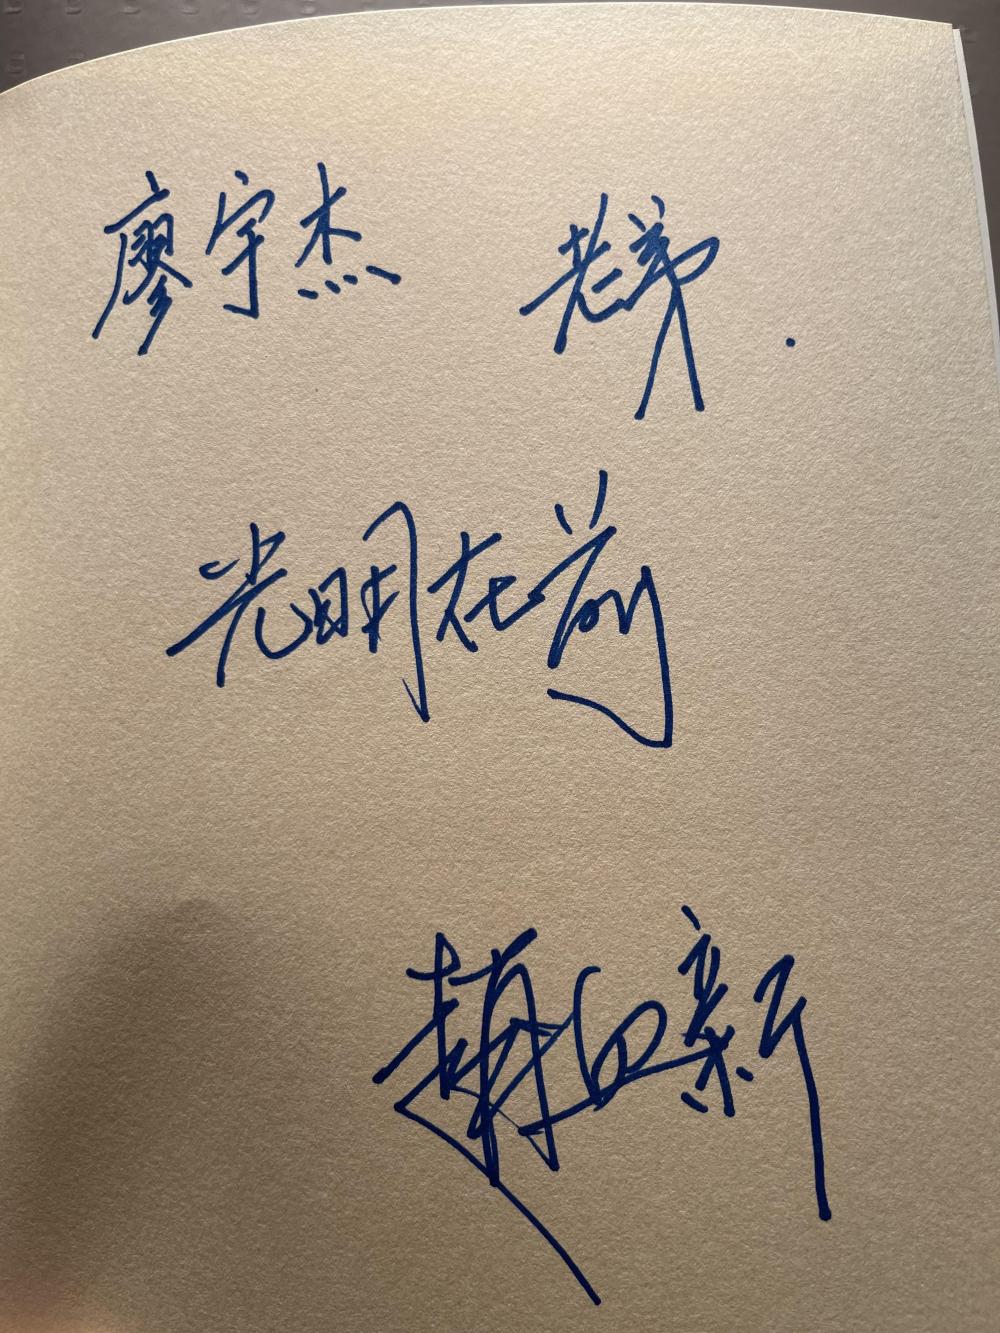 廖宇杰 老弟.
光明在前
趙白新